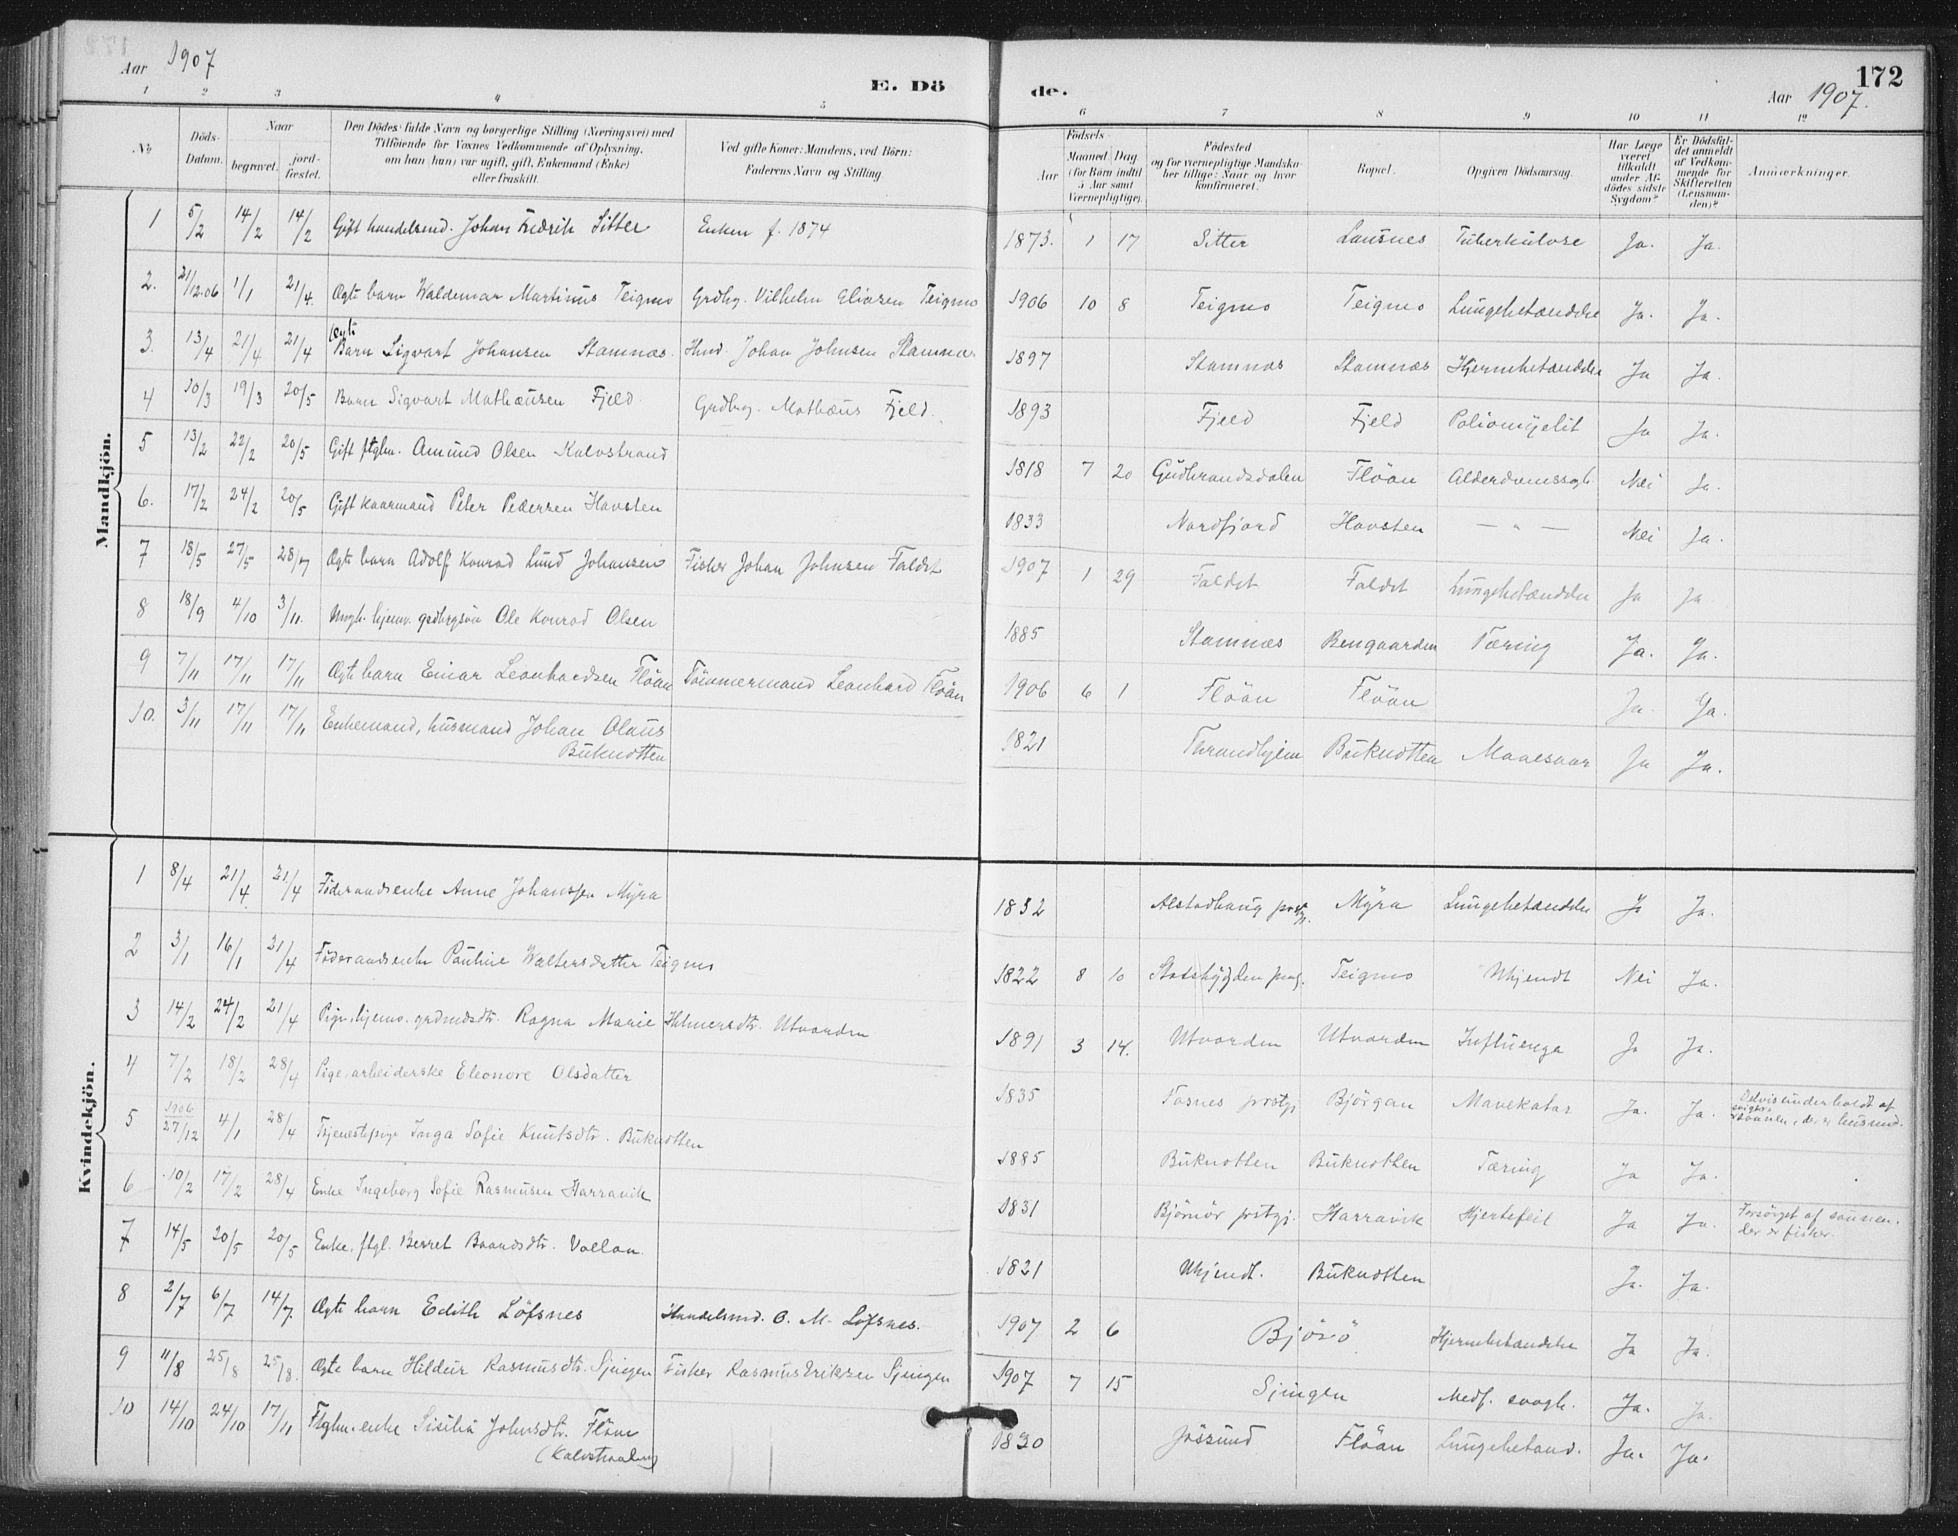 Aar 1907
E. Dö de.
172
Aar 1907.
1 2 3 4 5 6 7 8 9 10 11 12
No
Döds-Datum.
Naar
begravet.
jord-fæstet.
Den Dödes fulde Navn og borgerlige Stilling (Næringsvei) med Tilföiende for Voxnes Vedkommende af Oplysning, om han (hun) var ugift, gift, Enkemand (Enke) eller fraskilt.
Ved gifte Koner: Mandens, ved Börn: Faderens Navn og Stilling.
Födsels-
Aar
Maaned Dag (for Börn indtil 5 Aar samt Værnepligtige).
Födested og for værnepligtige Mandskaber tillige: Naar og hvor konfirmeret.
Bopæl.
Opgiven Dödsaarsag.
Har Læge været tilkaldt under Afdödes sidste Sygdom?
Er Dödsfaldet anmeldt af Vedkommende for Skifteretten (Lensmanden)?
Anmærkninger.
Mandkjön.
1 5/2 14/2 14/2 Gift handelsmd. Johan Fredrik Sitter Enken f. 1874 1873. 1 17 Sitter Lausnes Tuberkulose Ja. Ja.
2. 21/12.06 1/1 21/4. Ægte barn Waldemar Martinus Teigmo Grdbr. Vilhelm Eliasen Teigmo 1906 10 8 Teigmo Teigmo Lungebetændelse Ja. Ja.
3. 13/4 21/4 21/4 Barn Sigvart Johansen Stamnæs. Husmd. Johan Johnsen Stamnæs 1897 Stamnæs Stamnæs Hjernebetændelse Ja Ja.
4 10/3 19/3 20/5 Barn Sigvart Mathæusen Fjeld Grdbrg. Mathæus Fjeld. 1893 Fjeld Fjeld Poliomyelit Ja Ja.
5 13/2 22/2 20/5 Gift ftglm. Amund Olsen Kalvstrand 1818 7 20 Gudbrandsdalen Flöan Alderdomssygd. Nei Ja.
6. 17/2 24/2 20/5 Gift kaarmand Peter Pedersen Havsten 1833 Nordfjord Havsten — " — Nei Ja.
7 18/5 27/5 28/7 Ægte barn Adolf Konrad Lund Johansen Fisker Johan Johnsen Faldet 1907 1 29 Faldet Faldet Lungebetændelse Ja Ja
8 18/9 4/10 3/11. Ungk. hjemv. grdbrgsön Ole Konrad Olsen 1885 Stamnæs Bengaarden Tæring Ja. Ja.
9 7/11 17/11 17/11 Ægte barn Einar Leonhardsen Flöan Tömmermand Leonhard Flöan 1906 6 1 Flöan Flöan Ja. Ja.
10. 3/11 17/11 17/11 Enkemand, husmand Johan Olaus
Buknotten 1821 Trondhjem Buknotten Mavesaar Ja Ja.
Kvindekjön.
1 8/4 21/4 21/4 Föderaadsenke Anne Johanssen Myra 1832 Alstadhaug prstgj. Myra Lungebetændelse Ja Ja.
2 3/1 16/1 21/4 Föderaadsenke Pauline Waltersdatter Teigmo 1822 8 10 Stadsbygden prstgj. Teigmo Ukjendt Nei Ja.
3 14/2 24/2 21/4 Pige, hjemv. grdmdsdtr. Ragna Marie Hilmersdtr. Utvorden 1891 3 14. Utvorden Utvorden Influenza Ja Ja.
4 7/2 18/2 28/4 Pige, arbeiderske Eleonore Olsdatter 1835 Fosnes prstgj. Björgan Mavekatar Ja. Ja. Delvis underholdt af
svigersönnen, der er husmd.
5 1906 27/12 4/1 28/4 Tjenestepige Inga Sofie Knutsdtr. Buknotten 1885 Buknotten Buknotten Tæring Ja Ja.
6 10/2 17/2 28/4 Enke Ingeborg Sofie Rasmusen Harravik 1831 Björnör prstgj. Harravik Hjertefeil Ja Ja. Forsörget af sönnen,
der er fisker.
7 14/5 20/5 20/5 Enke, ftgl. Berret Baardsdtr. Vollan. 1821 Ukjendt. Buknotten Ja. Ja.
8 2/7 6/7 14/7. Ægte barn Edith Löfsnes Handelsmd. O. M. Löfsnes. 1907 2 6 Björö Hjernebetændelse Ja Ja.
9 11/8 25/8 25/8. Ægte barn Hildur Rasmusdtr. Sjingen Fisker Rasmus Eriksen Sjingen 1907 7 15 Sjingen Medf. svagh. Ja. Ja.
10 14/10 24/10 17/11 Ftglm. enke Sisilia Johnsdtr. Flöan
(Kalvstraalen) 1830 Jössund Flöan Lungebetænd. Ja. Ja.